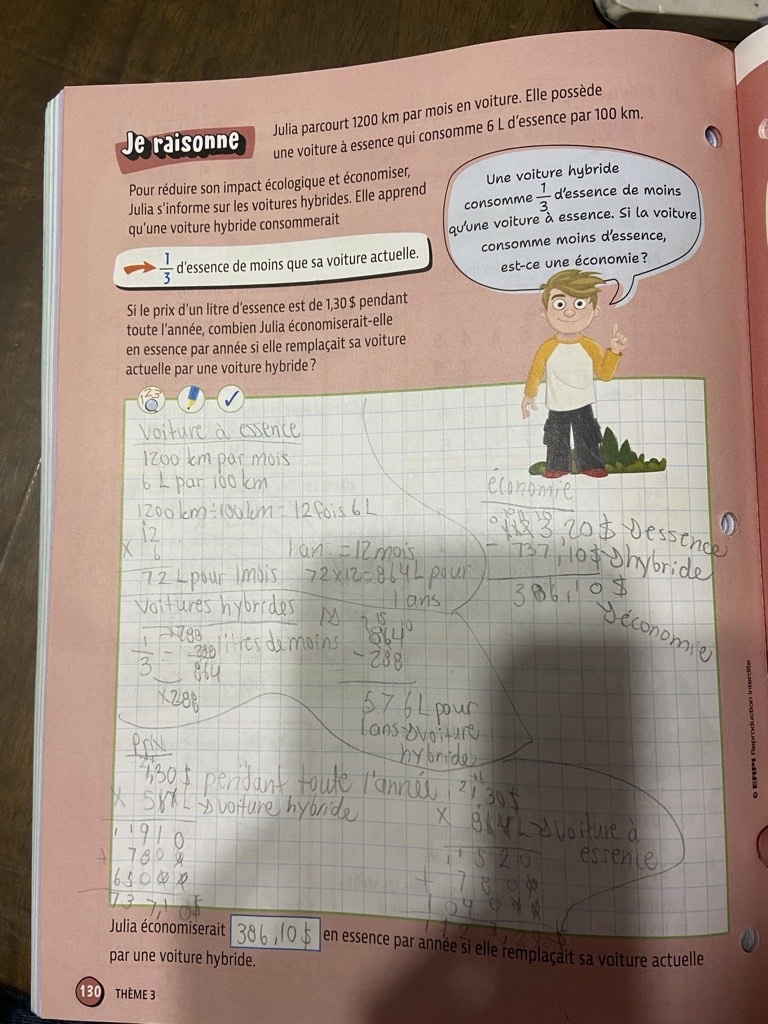 Je raisonne
Julia parcourt 1200 km par mois en voiture. Elle possède
une voiture à essence qui consomme 6 L d'essence par 100 km.
Pour réduire son impact écologique et économiser,
Julia s'informe sur les voitures hybrides. Elle apprend
qu'une voiture hybride consommerait
1/3 d'essence de moins que sa voiture actuelle.
Une voiture hybride
consomme 1/3 d'essence de moins
qu'une voiture à essence. Si la voiture
consomme moins d'essence,
est-ce une économie ?
Si le prix d'un litre d'essence est de 1,30 $ pendant
toute l'année, combien Julia économiserait-elle
en essence par année si elle remplaçait sa voiture
actuelle par une voiture hybride ?
123
Voiture à essence
1200 km par mois
6 L par 100 km
1200 km ÷ 100 km = 12 fois 6 L
12
x 6
72 L pour 1 mois
1 an = 12 mois
72 x 12 = 864 L pour
1 ans
Voitures hybrides
x288
1/3 = 288/864 litres de moins
x288
864
- 288
576 L pour
1 ans voiture
hybride
économie
3,20 $ essence
- 737,10 $ hybride
386,10 $
économie
Prix
1,30 $ pendant toute l'année
x L voiture hybride
910
+ 780
650
737,10 $
1,30 $
x 864 L voiture à
essence
520
+ 780
1040
Julia économiserait 386,10 $ en essence par année si elle remplaçait sa voiture actuelle
par une voiture hybride.
130 THÈME 3
© ERPI Reproduction interdite